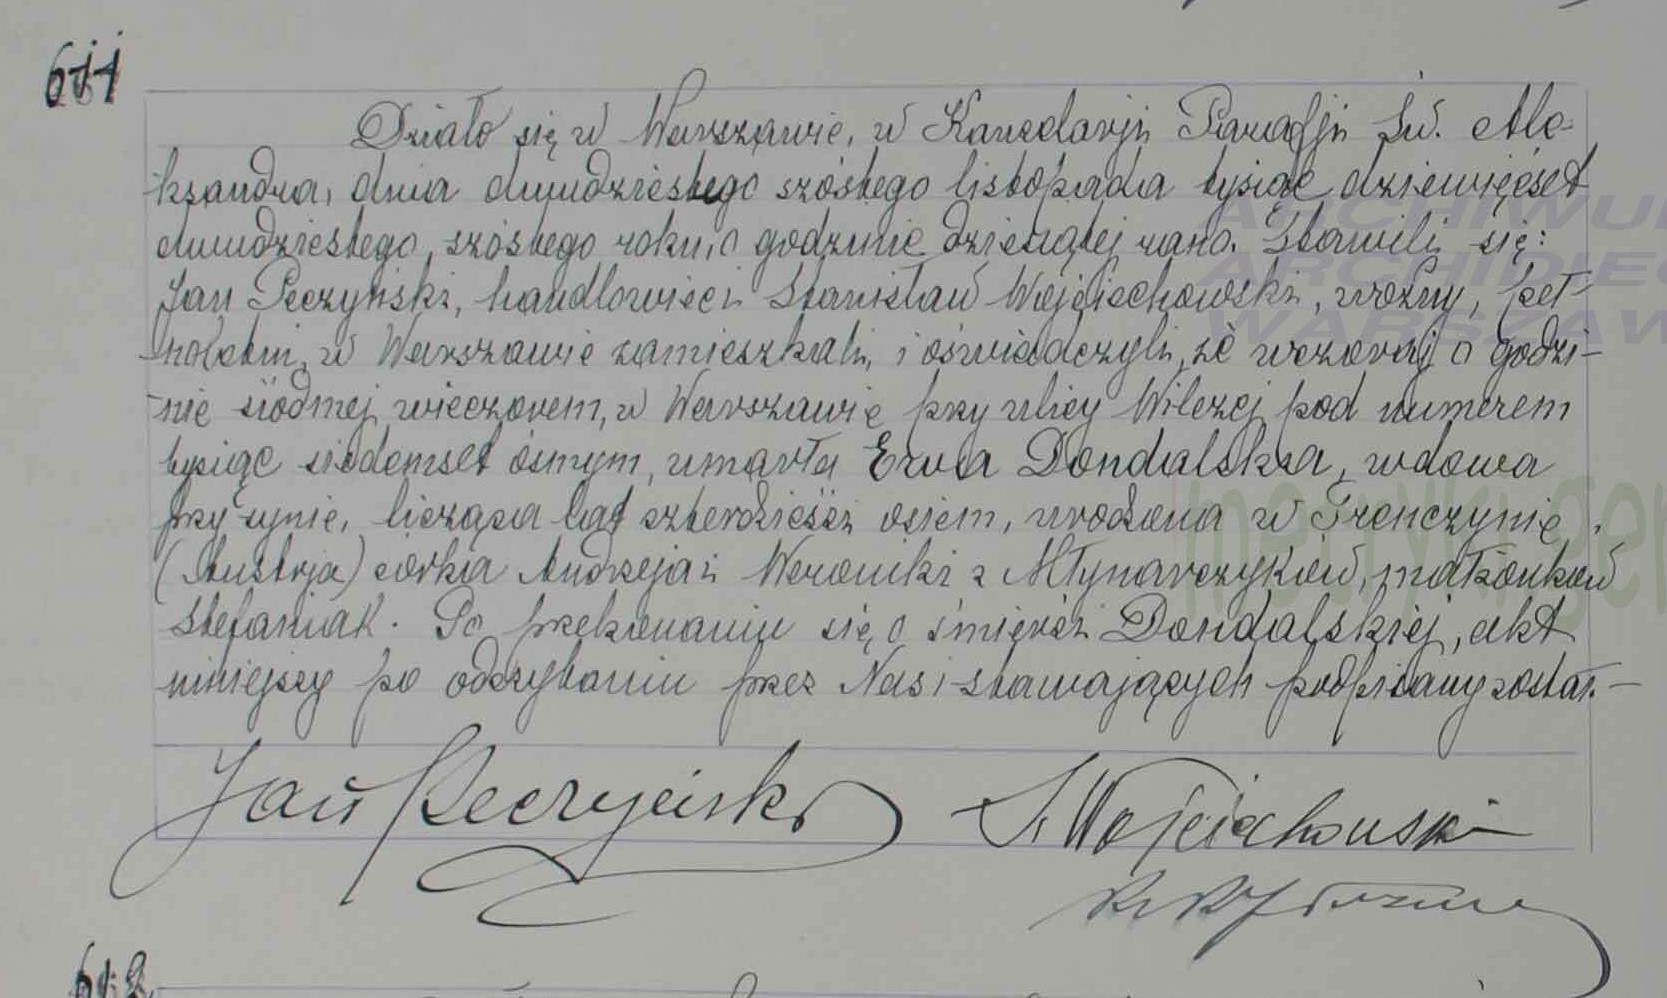 611
Działo się w Warszawie, w Kancelarji Parafji Św. Ale-
ksandra, dnia dwudziestego szóstego listopada tysiąc dziewięćset
dwudziestego szóstego roku, o godzinie dziesiątej rano. Stawili się:
Jan Peczyński, handlowiec i Stanisław Wojciechowski, woźny, peł-
noletni, w Warszawie zamieszkali, i oświadczyli, że wczoraj o godzi-
nie siódmej wieczorem, w Warszawie przy ulicy Wilczej pod numerem
tysiąc siedemset ósmym, umarła Ewa Dondalska, wdowa
przy synie, licząca lat czterdzieści osiem, urodzona w Trenczynie
(Austrja) córka Andrzeja i Weroniki z Młynarczyków, małżonków
Stefaniak. Po przekonaniu się o śmierci Dondalskiej, akt
niniejszy po odczytaniu przez Nas i stawających podpisany został.—
Jan Peczyński St. Wojciechowski
612
ARCHIWU
ARCHIDIEC
WARSZAW
metryki.gen